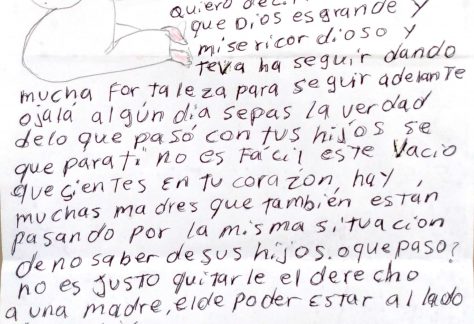 quiero deci
que Dios es grande y
misericordioso y
teva ha seguir dando
mucha For taleza para seguir adelante
ojalá algún dia sepas la verdad
delo que pasó con tus hijos se
que para ti no es Fácil este vacio
que çientes en tu corazon, hay
muchas madres que también están
pasando por la misma situacion
de no saber de sus hijos. o que paso?
no es justo quitarle el derecho
a una madre, el de poder estar al lado